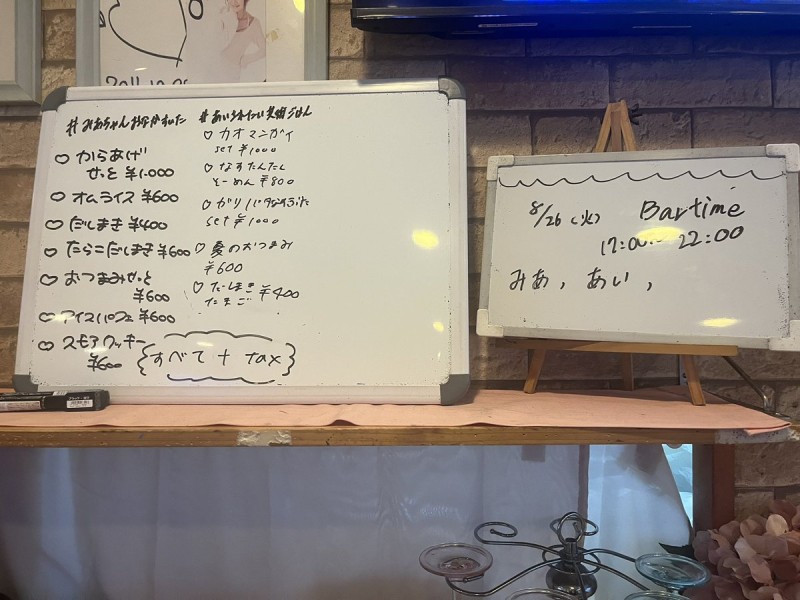 2011.10.
#みあちゃんおなかすいた
♡からあげ
せっと ¥1.000
♡オムライス ¥600
♡だしまき ¥400
♡たらこだしまき ¥600
♡おつまみせっと
¥600
♡アイスパフェ ¥600
♡スモアクッキー
¥600
#あい
ごはん
♡カオマンガイ
set ¥1000
♡なすたんたん
そーめん ¥800
♡ガリバタなすぶた
set ¥1000
♡夏のおつまみ
¥600
♡だしまき
たまご ¥400
すべて + tax
8/26 (火) Bartime
17:00~ 22:00
みあ, あい,